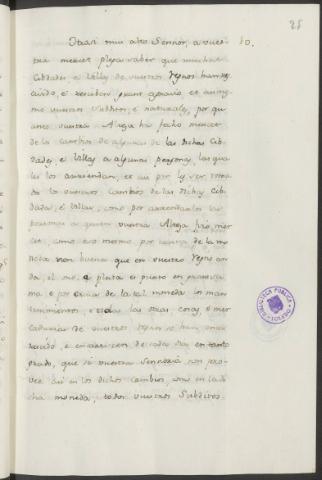 25
Itaan mui alto Sennor, a vues- 10.
tra merzet plega saber que muchas
Cibdades, e Villas de vuestros Regnos han rez
cebido, e reciben grant agravio, et aunq
me vuestros Subditos, e naturales, por qu
anto vuestra Alteza ha fecho merced
de los cambios de algunas de las dichas Cib
dades, e Villas a algunas personas, las qua
les los arriendan, et asi por les ser toma
do los vuestros cambios de las dichas Cib
dades, e Villas, como por arrendarlos las
personas a quien vuestra Alteza fizo mer
cet, como eso mesmo por causa de la mo
neda non buena que en vuestro Regno an
da, el oro, e plata es puesto en grant su
ma, e por causa de la tal moneda los man
tenimientos, e todas las otras cosas, e mer
cadurias de vuestros Regnos se han enca
recido, e encarescen de cada dia, en tanto
grado, que si vuestra Sennoria non pro
vee asi en los dichos cambios, como en la di
cha moneda, todos vuestros Subditos
BIBLIOTECA PUBLICA
TOLEDO